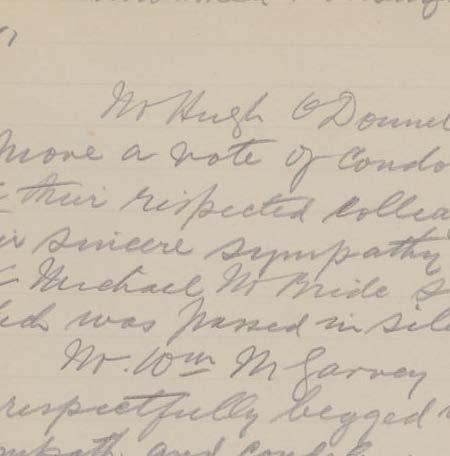 Mr Hugh O'Donnel
move a vote of condo
their respected collea
sincere sympathy
Michael McBride
was passed in sile
Mr. Wm McGarvey
respectfully begged
and